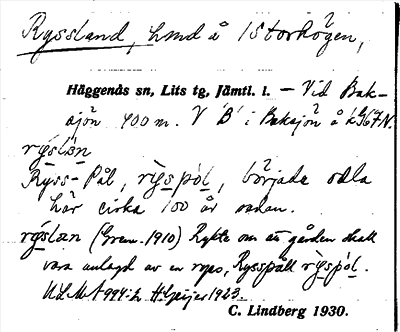 Ryssland, hmd å Storhögen,
Häggenås sn, Lits tg, Jämtl. l. — Vid Bak-
sjön 400 m. V 'B' i Baksjön å
rýslan
Ryss-Pål, började odla
här cirka 100 år sedan.
(Gren. 1910) Rykte om att gården skall
vara anlagd av en ryss, Ryss-påll
ULMA 994:2 H. Geijer 1923.
C. Lindberg 1930.